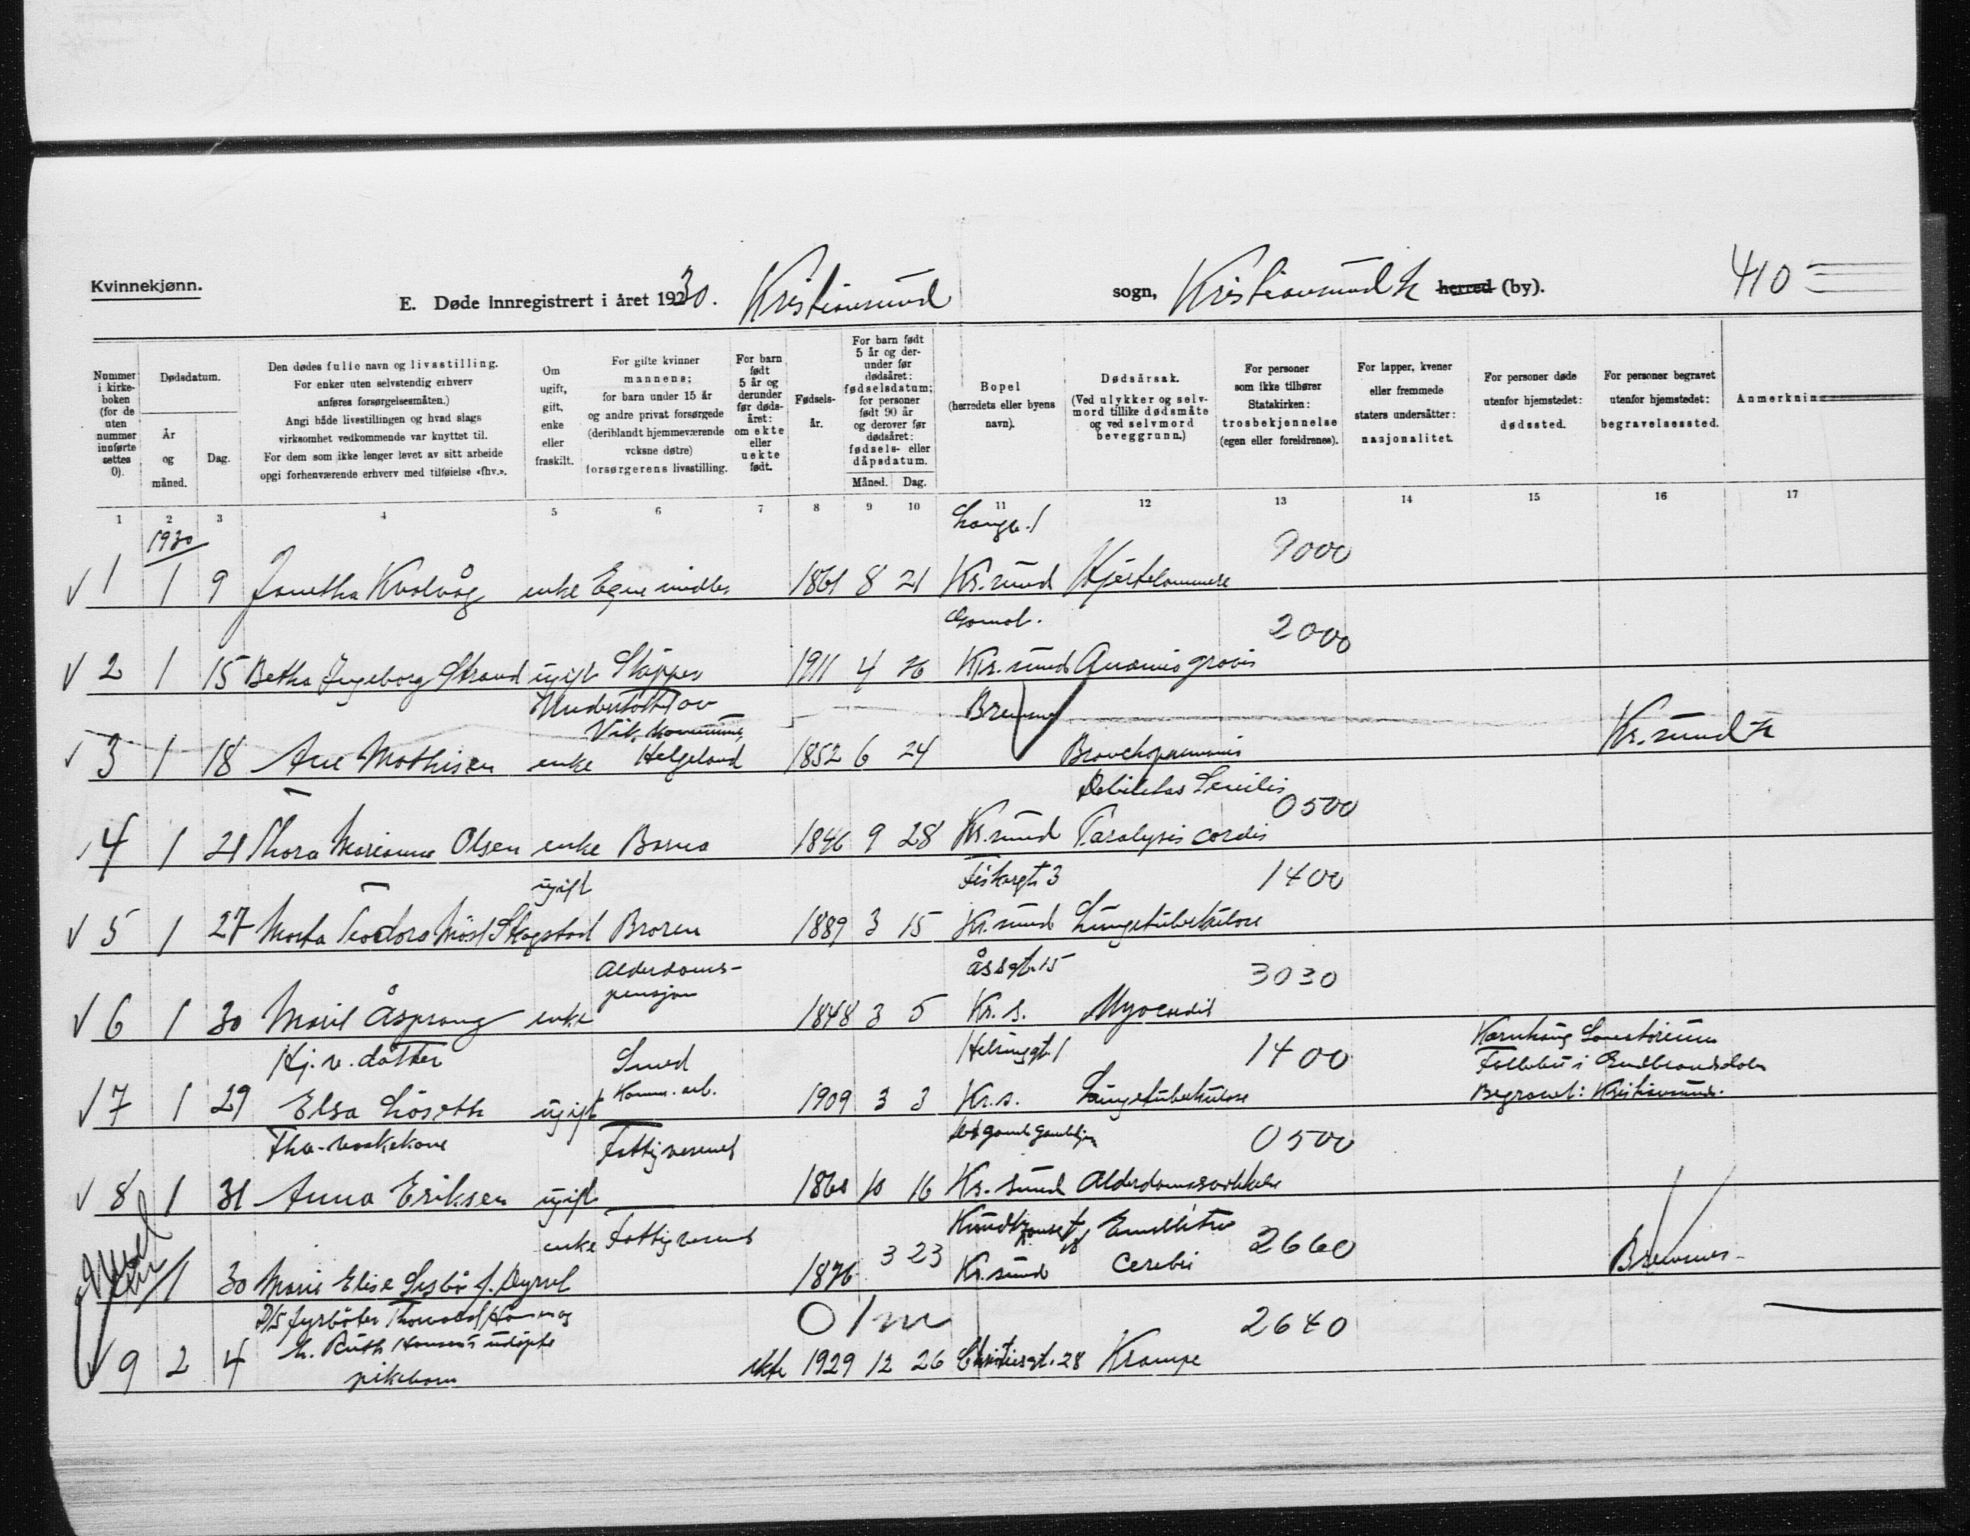 Kvinnekjønn.
E. Døde innregistrert i året 1930. Kristiansund sogn, Kristiansund N herred (by). 410
Nummer i kirkeboken (for de uten nummer innførte settes 0).
Dødsdatum.
År og måned.
Dag.
Den dødes fulle navn og livsstilling.
For enker uten selvstendig erhverv anføres forsørgelsesmåten.)
Angi både livsstillingen og hvad slags virksomhet vedkommende var knyttet til.
For dem som ikke lenger levet av sitt arbeide opgi forhenværende erhverv med tilføielse «fhv.».
Om ugift, gift, enke eller fraskilt.
For gifte kvinner mannens; for barn under 15 år og andre privat forsørgede (deriblandt hjemmeværende voksne døtre) forsørgerens livsstilling.
For barn født 5 år og derunder før dødsåret: om ekte eller uekte født.
Fødselsår.
For barn født 5 år og derunder før dødsåret: fødselsdatum; for personer født 90 år og derover før dødsåret: fødsels- eller dåpsdatum.
Måned. Dag.
Bopel (herredets eller byens navn).
Dødsårsak. (Ved ulykker og selvmord tillike dødsmåte og ved selvmord beveggrunn.)
For personer som ikke tilhører Statskirken: trosbekjennelse (egen eller foreldrenes).
For lapper, kvener eller fremmede staters undersåtter: nasjonalitet.
For personer døde utenfor hjemstedet: dødssted.
For personer begravet utenfor hjemstedet: begravelsessted.
Anmerkning
1 2 3 4 5 6 7 8 9 10 11 12 13 14 15 16 17
1930 Langv. 1 9000
1 1 9 Janetha Kvalvåg enke Egne midler 1861 8 21 Kr.sund Hjertelammelse
Gomal. 2000
2 1 15 Betha Ingeborg Strand ugift Skipper 1911 4 26 Kr.sund Anæmia gravis
Understøttet av
Vik kommune, Bremsnes Kr.sund N
3 1 18 Ane Mathisen enke Helgeland 1852 6 24 Bronchopneumoni
Debilitas Senilis 0500
4 1 21 Thora Marianne Olsen enke Barna 1846 9 28 Kr.sund Paralysis cordis
ugift Fiskargt 3 1400
5 1 27 Marta Teodora Møst Skogstad Broren 1889 3 15 Kr.sund Lungetuberkulose
Alderdoms- Åsgt. 15 3030
pensjon
6 1 30 Marit Åsprong enke 1848 3 5 Kr. s. Myocardit
Hj. v. datter Smed 1400 Kornhaug Sanatorium
Komm. arb. Follebu i Gudbrandsdalen
7 1 29 Elsa Løseth ugift 1909 3 3 Kr. s. Lungetuberkulose Begravet: Kristiansund.
Fhv. vaskekone Fattigvesenet 0500
8 1 31 Anna Eriksen ugift 10 16 Kr. sund Alderdomssvakkelse
enke Fattigvesenet 2660
1 30 Marie Elise f. Dyrvel 1876 3 23 Kr.sund Cerebri Bremsnes
D/S fyrbøter Thorvald Hansen og 0 1m 2640
h. Ruth Hansen's udøpte
9 2 4 pikebarn ekte 1929 12 26 28 Krampe